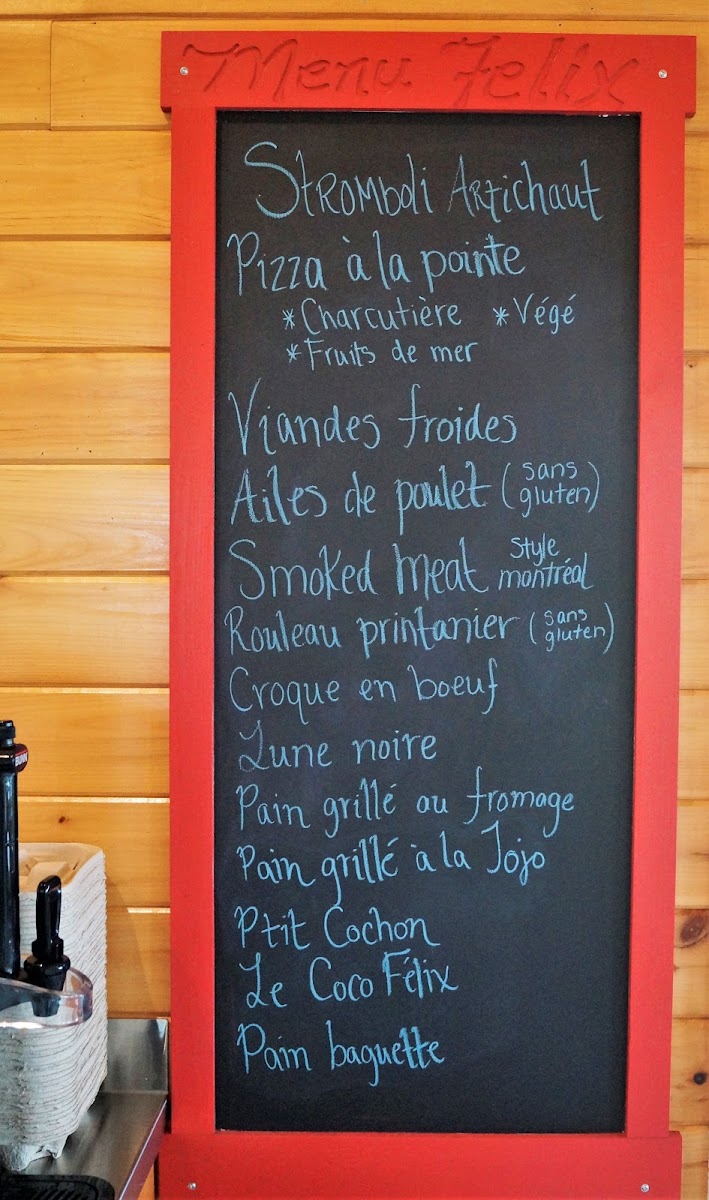 Menu Felix
Stromboli Artichaut
Pizza à la pointe
*Charcutière *Végé
*Fruits de mer
Viandes froides
Ailes de poulet (sans gluten)
Smoked meat style montréal
Rouleau printanier (sans gluten)
Croque en boeuf
Lune noire
Pain grillé au fromage
Pain grillé à la Jojo
Ptit Cochon
Le Coco Félix
Pain baguette
BUNN